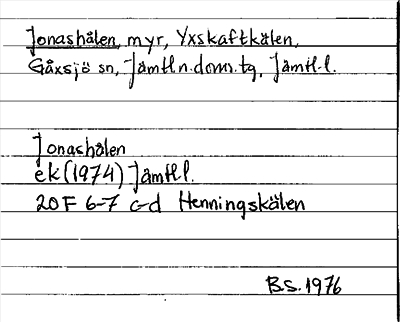 Jonashålen, myr, Yxskaftkälen,
Gåxsjö sn, Jämtl.n.doms.tg, Jämtl.l.
Jonashålen
ek (1974) Jämtl.l.
20F 6-7 c-d Henningskälen
B.S. 1976